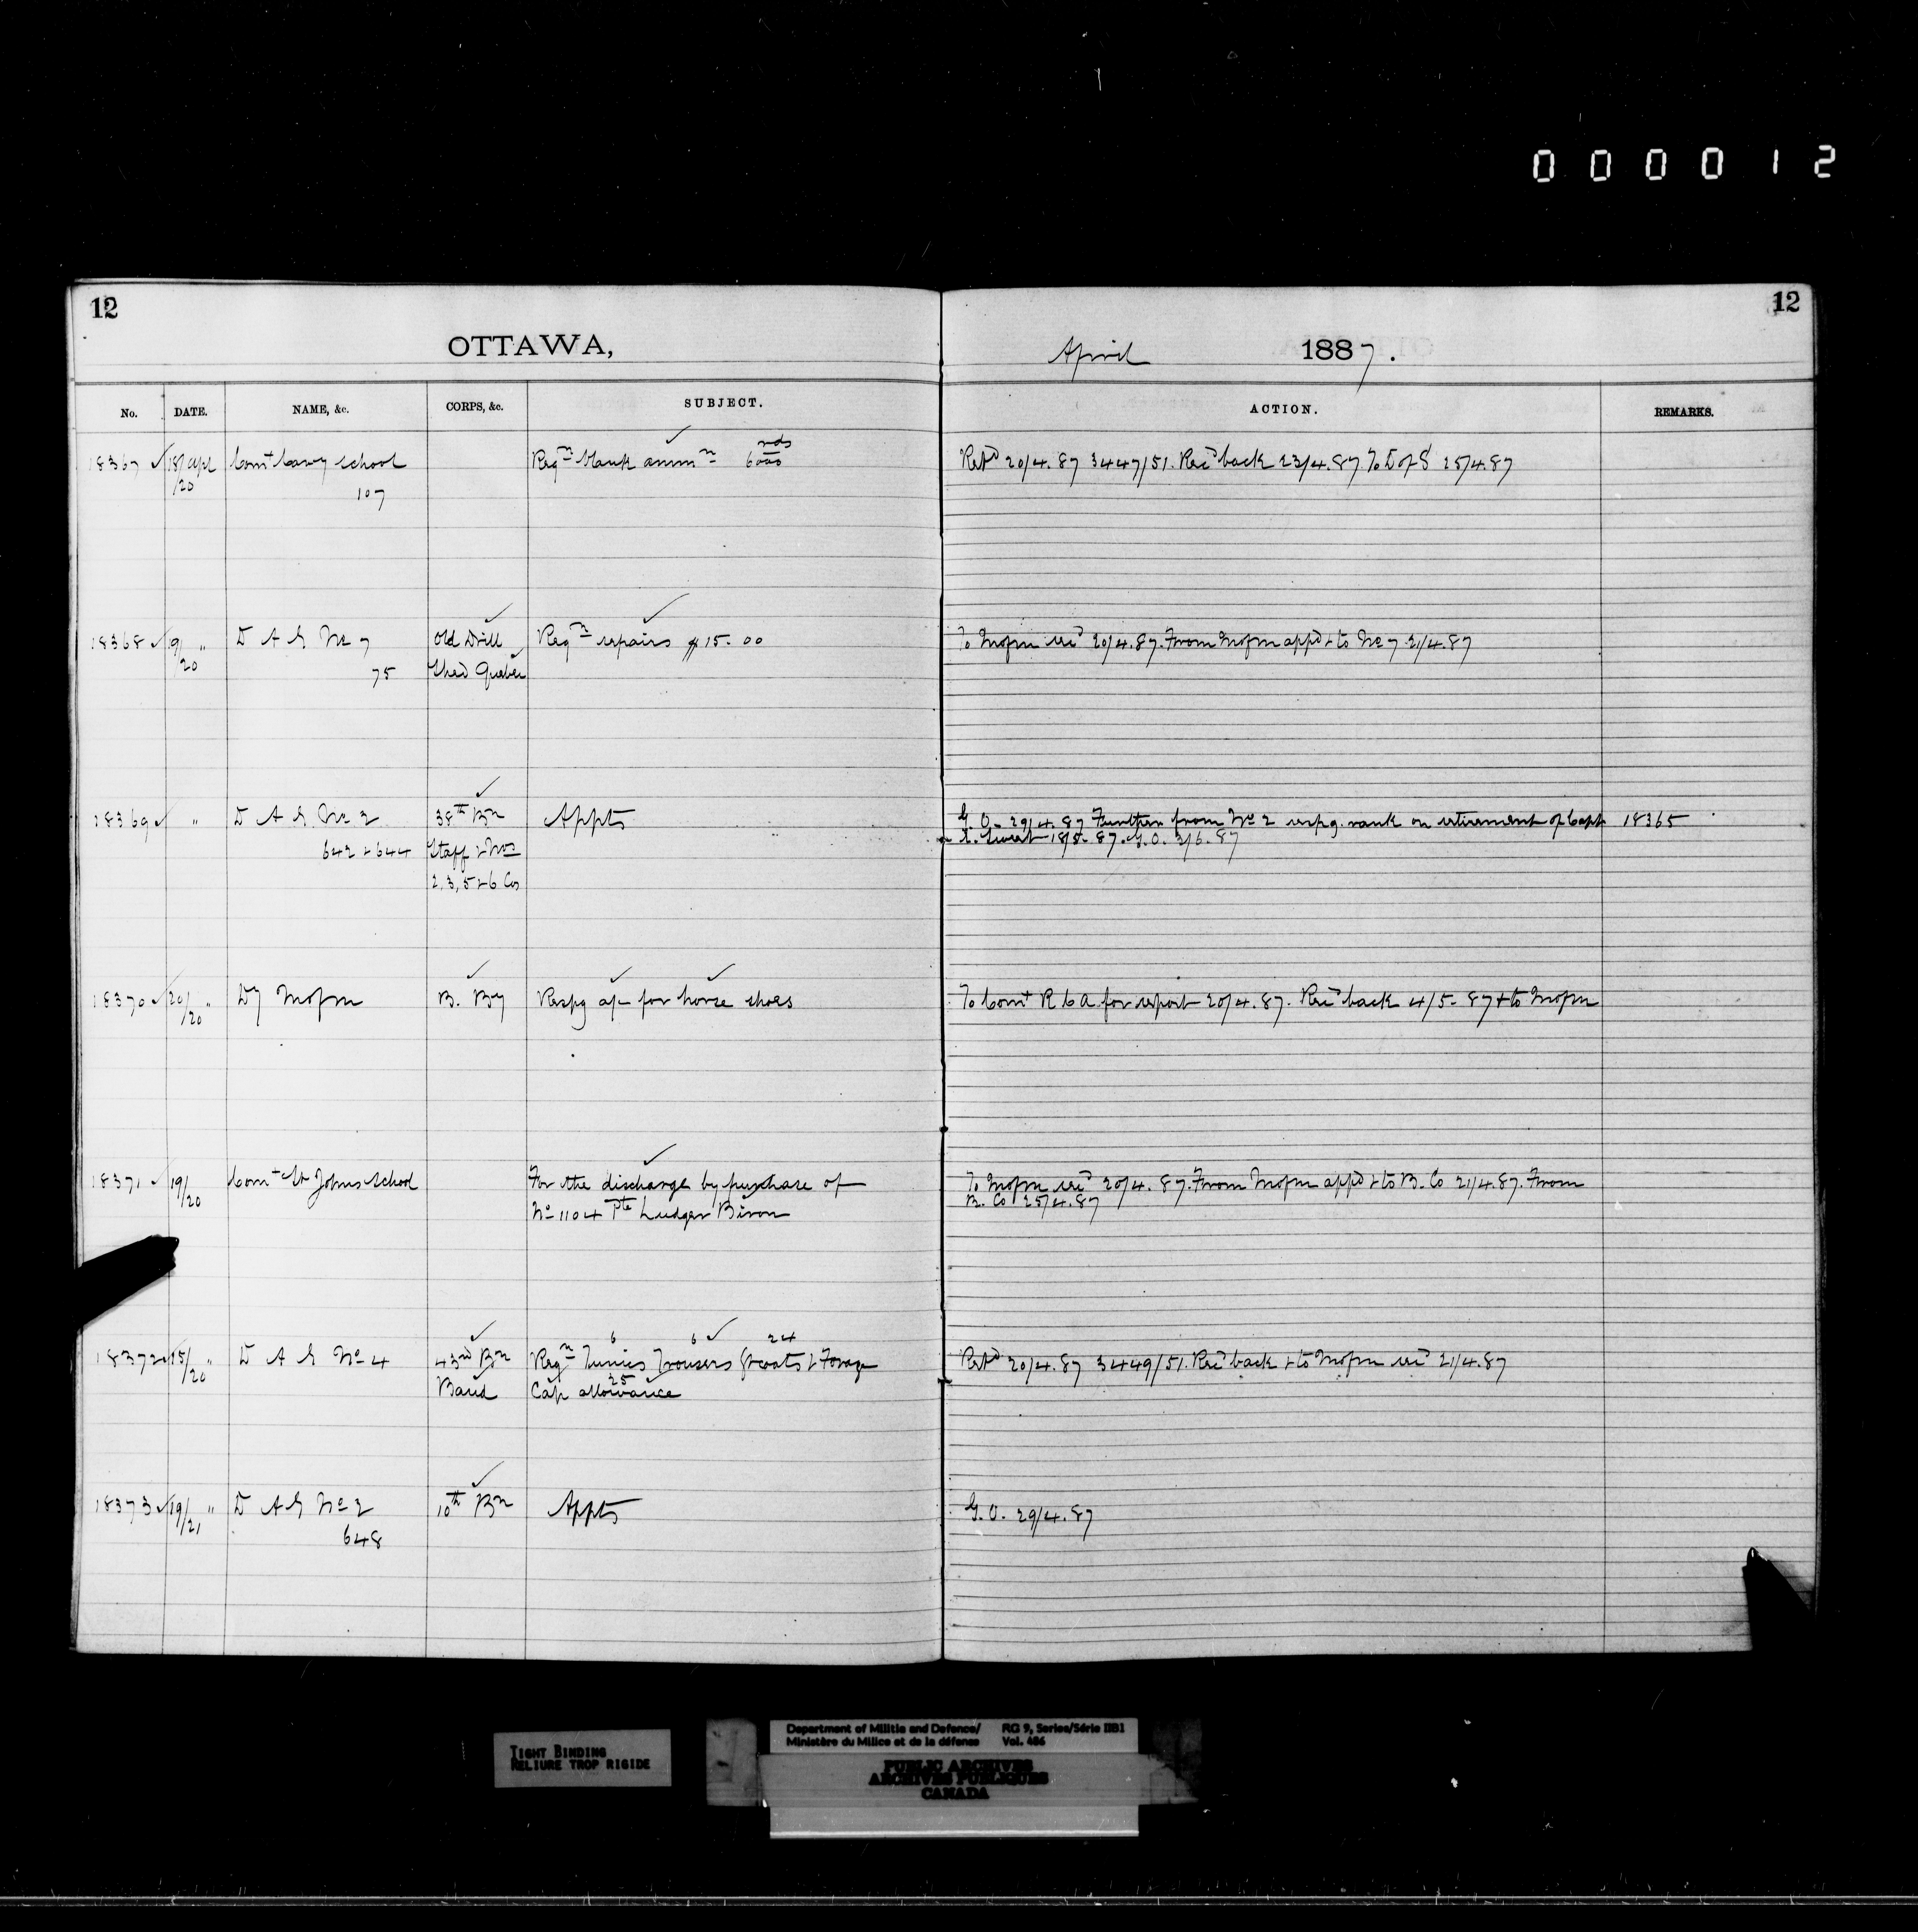 000012
12
12
OTTAWA,
April 1887.
No. DATE. NAME, &c. CORPS, &c. SUBJECT. ACTION. REMARKS.
18367 18/20 Apl Comt Cavy School Reqn blank ammn 6000 rds Retd 20/4.87 3447/51. Recd back 23/4.87 To D of S 25/4.87
107
18368 19/20 " D A G No 7 Old Drill Reqn repairs $15.00 To Mofm 20/4.87. From Mofm appd & to No 7 21/4.87
75 Shed Quebec
18369 " D A G No 2 38th Bn Appts G.O. 29/4.87 Further from No 2 respg. rank on retirement of Capt 18365
642 & 644 Staff & Nos 18/5.87. G.O. 3/6.87
2, 3, 5 & 6 Cos
18370 20/20 " Dy Mofm B. By Respg a/c for horse shoes To Comt R C A for report 20/4.87. Recd back 4/5-87 & to Mofm
18371 19/20 Comt St Johns School For the discharge by purchase of To Mofm 20/4.87. From Mofm appd & to B. Co 21/4.87. From
No 1104 Pte Ludger Biron B. Co 25/4.87
6 6 24
18372 15/20 " D A G No 4 43rd Bn Reqn Tunics Trousers Gtcoats & Forage Retd 20/4.87 3449/51. Recd back & to Mofm 21/4.87
25
Band Cap allowance
18373 19/21 " D A G No 2 10th Bn Appts G.O. 29/4.87
648
TIGHT BINDING
RELIURE TROP RIGIDE
Department of Militia and Defence/ RG 9, Series/Série IIB1
Ministère du Milice et de la défense Vol. 486
PUBLIC ARCHIVES
ARCHIVES PUBLIQUES
CANADA